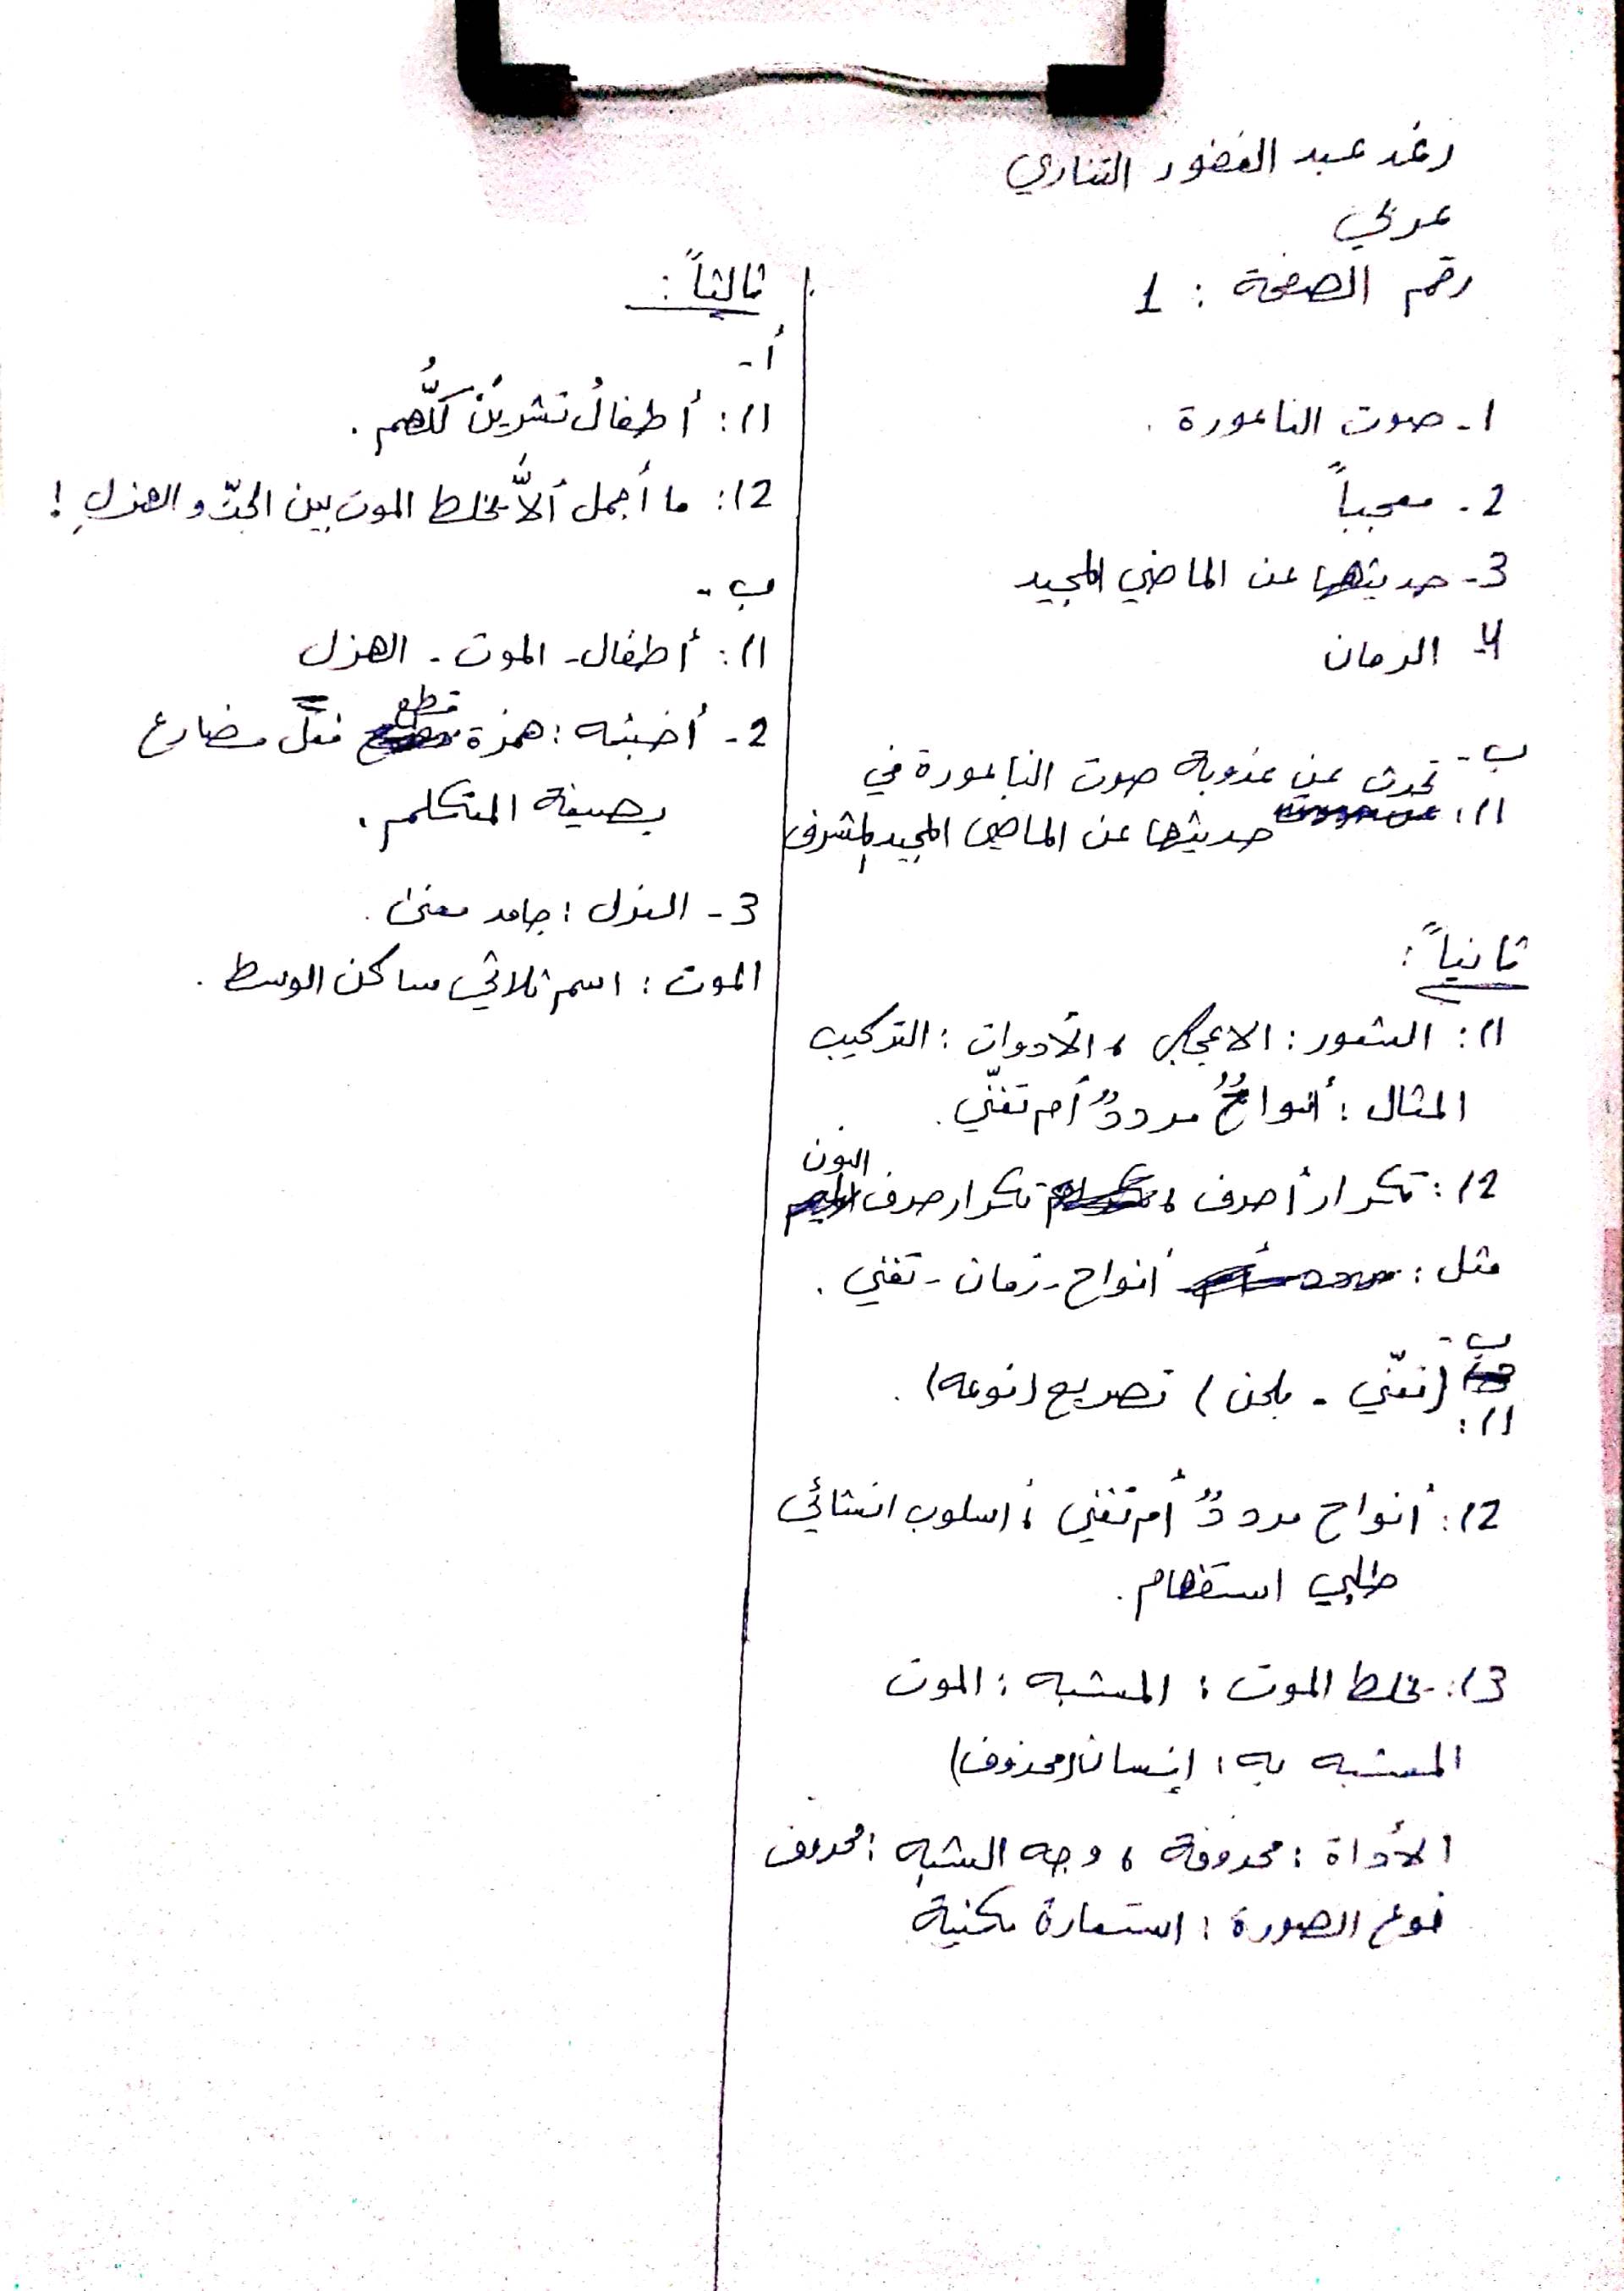 رغد عبد الغفور التناري
عربي
رقم الصفحة : 1
1- صوت الناعورة .
2- معجباً
3- حديثها عن الماضي المجيد
4- الزمان
ب-
تحدث عن عذوبة صوت الناعورة في
1/: حديثها عن الماضي المجيد المشرف
ثانياً :
1/: الشعور : الاعجاب ، الأدوات : التركيب
المثال : أنواحٌ مرددٌ أم تغنّي .
2/: تكرار أحرف ، تكرار حرف النون
مثل : أنواح - زمان - تغني .
ب-
1/: (تغنّي - بلحن) تصريع (نوعه) .
2/: أنواح مرددٌ أم تغني ، أسلوب انشائي
طلبي استفهام .
3/: يخلط الموت : المشبه : الموت
المشبه به : إنسان (محذوف)
الأداة : محذوفة ، وجه الشبه : محذوف
نوع الصورة : استعارة مكنية
ثالثاً :
أ-
1/: أطفالُ تشرينَ كلُّهم .
2/: ما أجمل ألاَّ يخلط الموت بين الجدّ و الهزلِ !
ب-
1/: أطفال - الموت - الهزل
2- همزة قطع فعل مضارع
بصيغة المتكلم .
3- الهزل : جامد معنى .
الموت : اسم ثلاثي ساكن الوسط .